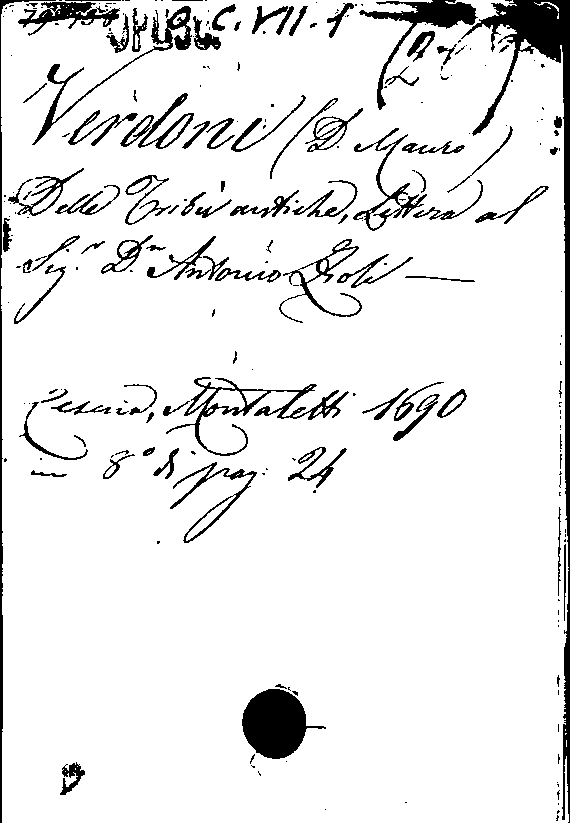 OPUSC. C. VII. f
Verdoni (D. Mauro)
Delle Tribù antiche, Lettera al
Sig.r D.n Antonio Zoli —
Cesena, Montaletti 1690
in 8° di pag. 24